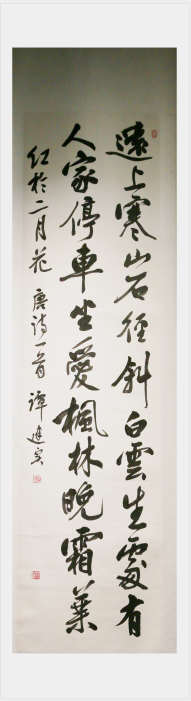 遠上寒山石徑斜白雲生處有
人家停車坐愛楓林晚霜葉
红於二月花 唐诗一首 譚建实